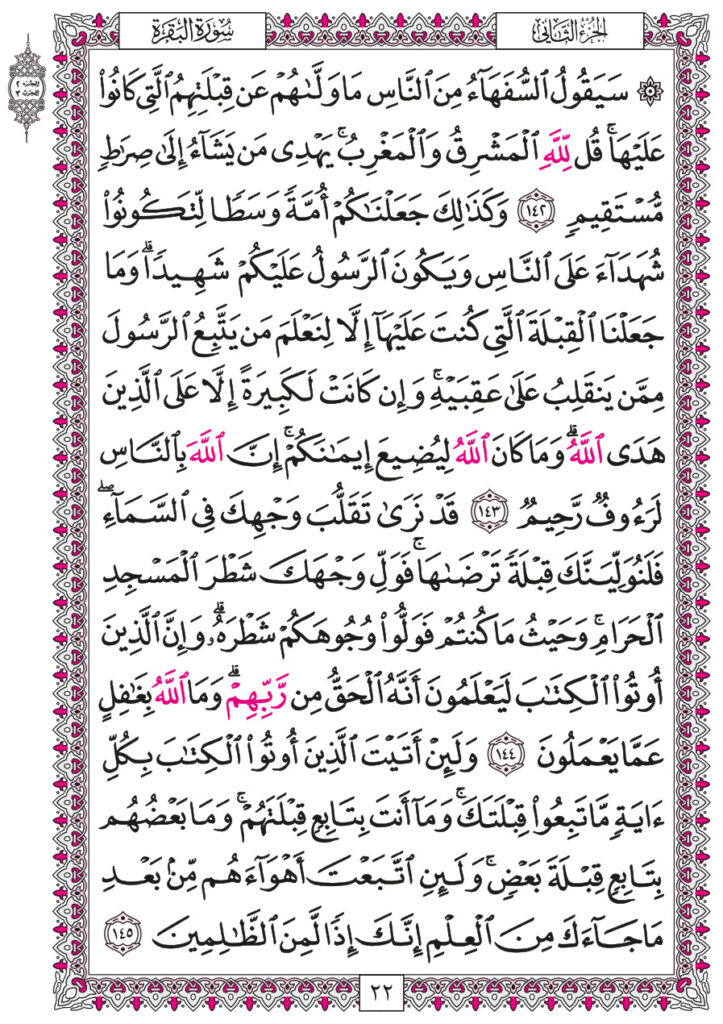 الجزء الثاني
سورة البقرة
الجزء ٢
الحزب ٣
۞ سَيَقُولُ ٱلسُّفَهَآءُ مِنَ ٱلنَّاسِ مَا وَلَّىٰهُمْ عَن قِبْلَتِهِمُ ٱلَّتِى كَانُوا۟
عَلَيْهَا ۚ قُل لِّلَّهِ ٱلْمَشْرِقُ وَٱلْمَغْرِبُ ۚ يَهْدِى مَن يَشَآءُ إِلَىٰ صِرَٰطٍ
مُّسْتَقِيمٍ ١٤٢ وَكَذَٰلِكَ جَعَلْنَٰكُمْ أُمَّةً وَسَطًا لِّتَكُونُوا۟
شُهَدَآءَ عَلَى ٱلنَّاسِ وَيَكُونَ ٱلرَّسُولُ عَلَيْكُمْ شَهِيدًا ۗ وَمَا
جَعَلْنَا ٱلْقِبْلَةَ ٱلَّتِى كُنتَ عَلَيْهَآ إِلَّا لِنَعْلَمَ مَن يَتَّبِعُ ٱلرَّسُولَ
مِمَّن يَنقَلِبُ عَلَىٰ عَقِبَيْهِ ۚ وَإِن كَانَتْ لَكَبِيرَةً إِلَّا عَلَى ٱلَّذِينَ
هَدَى ٱللَّهُ ۗ وَمَا كَانَ ٱللَّهُ لِيُضِيعَ إِيمَٰنَكُمْ ۚ إِنَّ ٱللَّهَ بِٱلنَّاسِ
لَرَءُوفٌ رَّحِيمٌ ١٤٣ قَدْ نَرَىٰ تَقَلُّبَ وَجْهِكَ فِى ٱلسَّمَآءِ ۖ
فَلَنُوَلِّيَنَّكَ قِبْلَةً تَرْضَىٰهَا ۚ فَوَلِّ وَجْهَكَ شَطْرَ ٱلْمَسْجِدِ
ٱلْحَرَامِ ۚ وَحَيْثُ مَا كُنتُمْ فَوَلُّوا۟ وُجُوهَكُمْ شَطْرَهُۥ ۗ وَإِنَّ ٱلَّذِينَ
أُوتُوا۟ ٱلْكِتَٰبَ لَيَعْلَمُونَ أَنَّهُ ٱلْحَقُّ مِن رَّبِّهِمْ ۗ وَمَا ٱللَّهُ بِغَٰفِلٍ
عَمَّا يَعْمَلُونَ ١٤٤ وَلَئِنْ أَتَيْتَ ٱلَّذِينَ أُوتُوا۟ ٱلْكِتَٰبَ بِكُلِّ
ءَايَةٍ مَّا تَبِعُوا۟ قِبْلَتَكَ ۚ وَمَآ أَنتَ بِتَابِعٍ قِبْلَتَهُمْ ۚ وَمَا بَعْضُهُم
بِتَابِعٍ قِبْلَةَ بَعْضٍ ۚ وَلَئِنِ ٱتَّبَعْتَ أَهْوَآءَهُم مِّنۢ بَعْدِ
مَا جَآءَكَ مِنَ ٱلْعِلْمِ إِنَّكَ إِذًا لَّمِنَ ٱلظَّٰلِمِينَ ١٤٥
٢٢